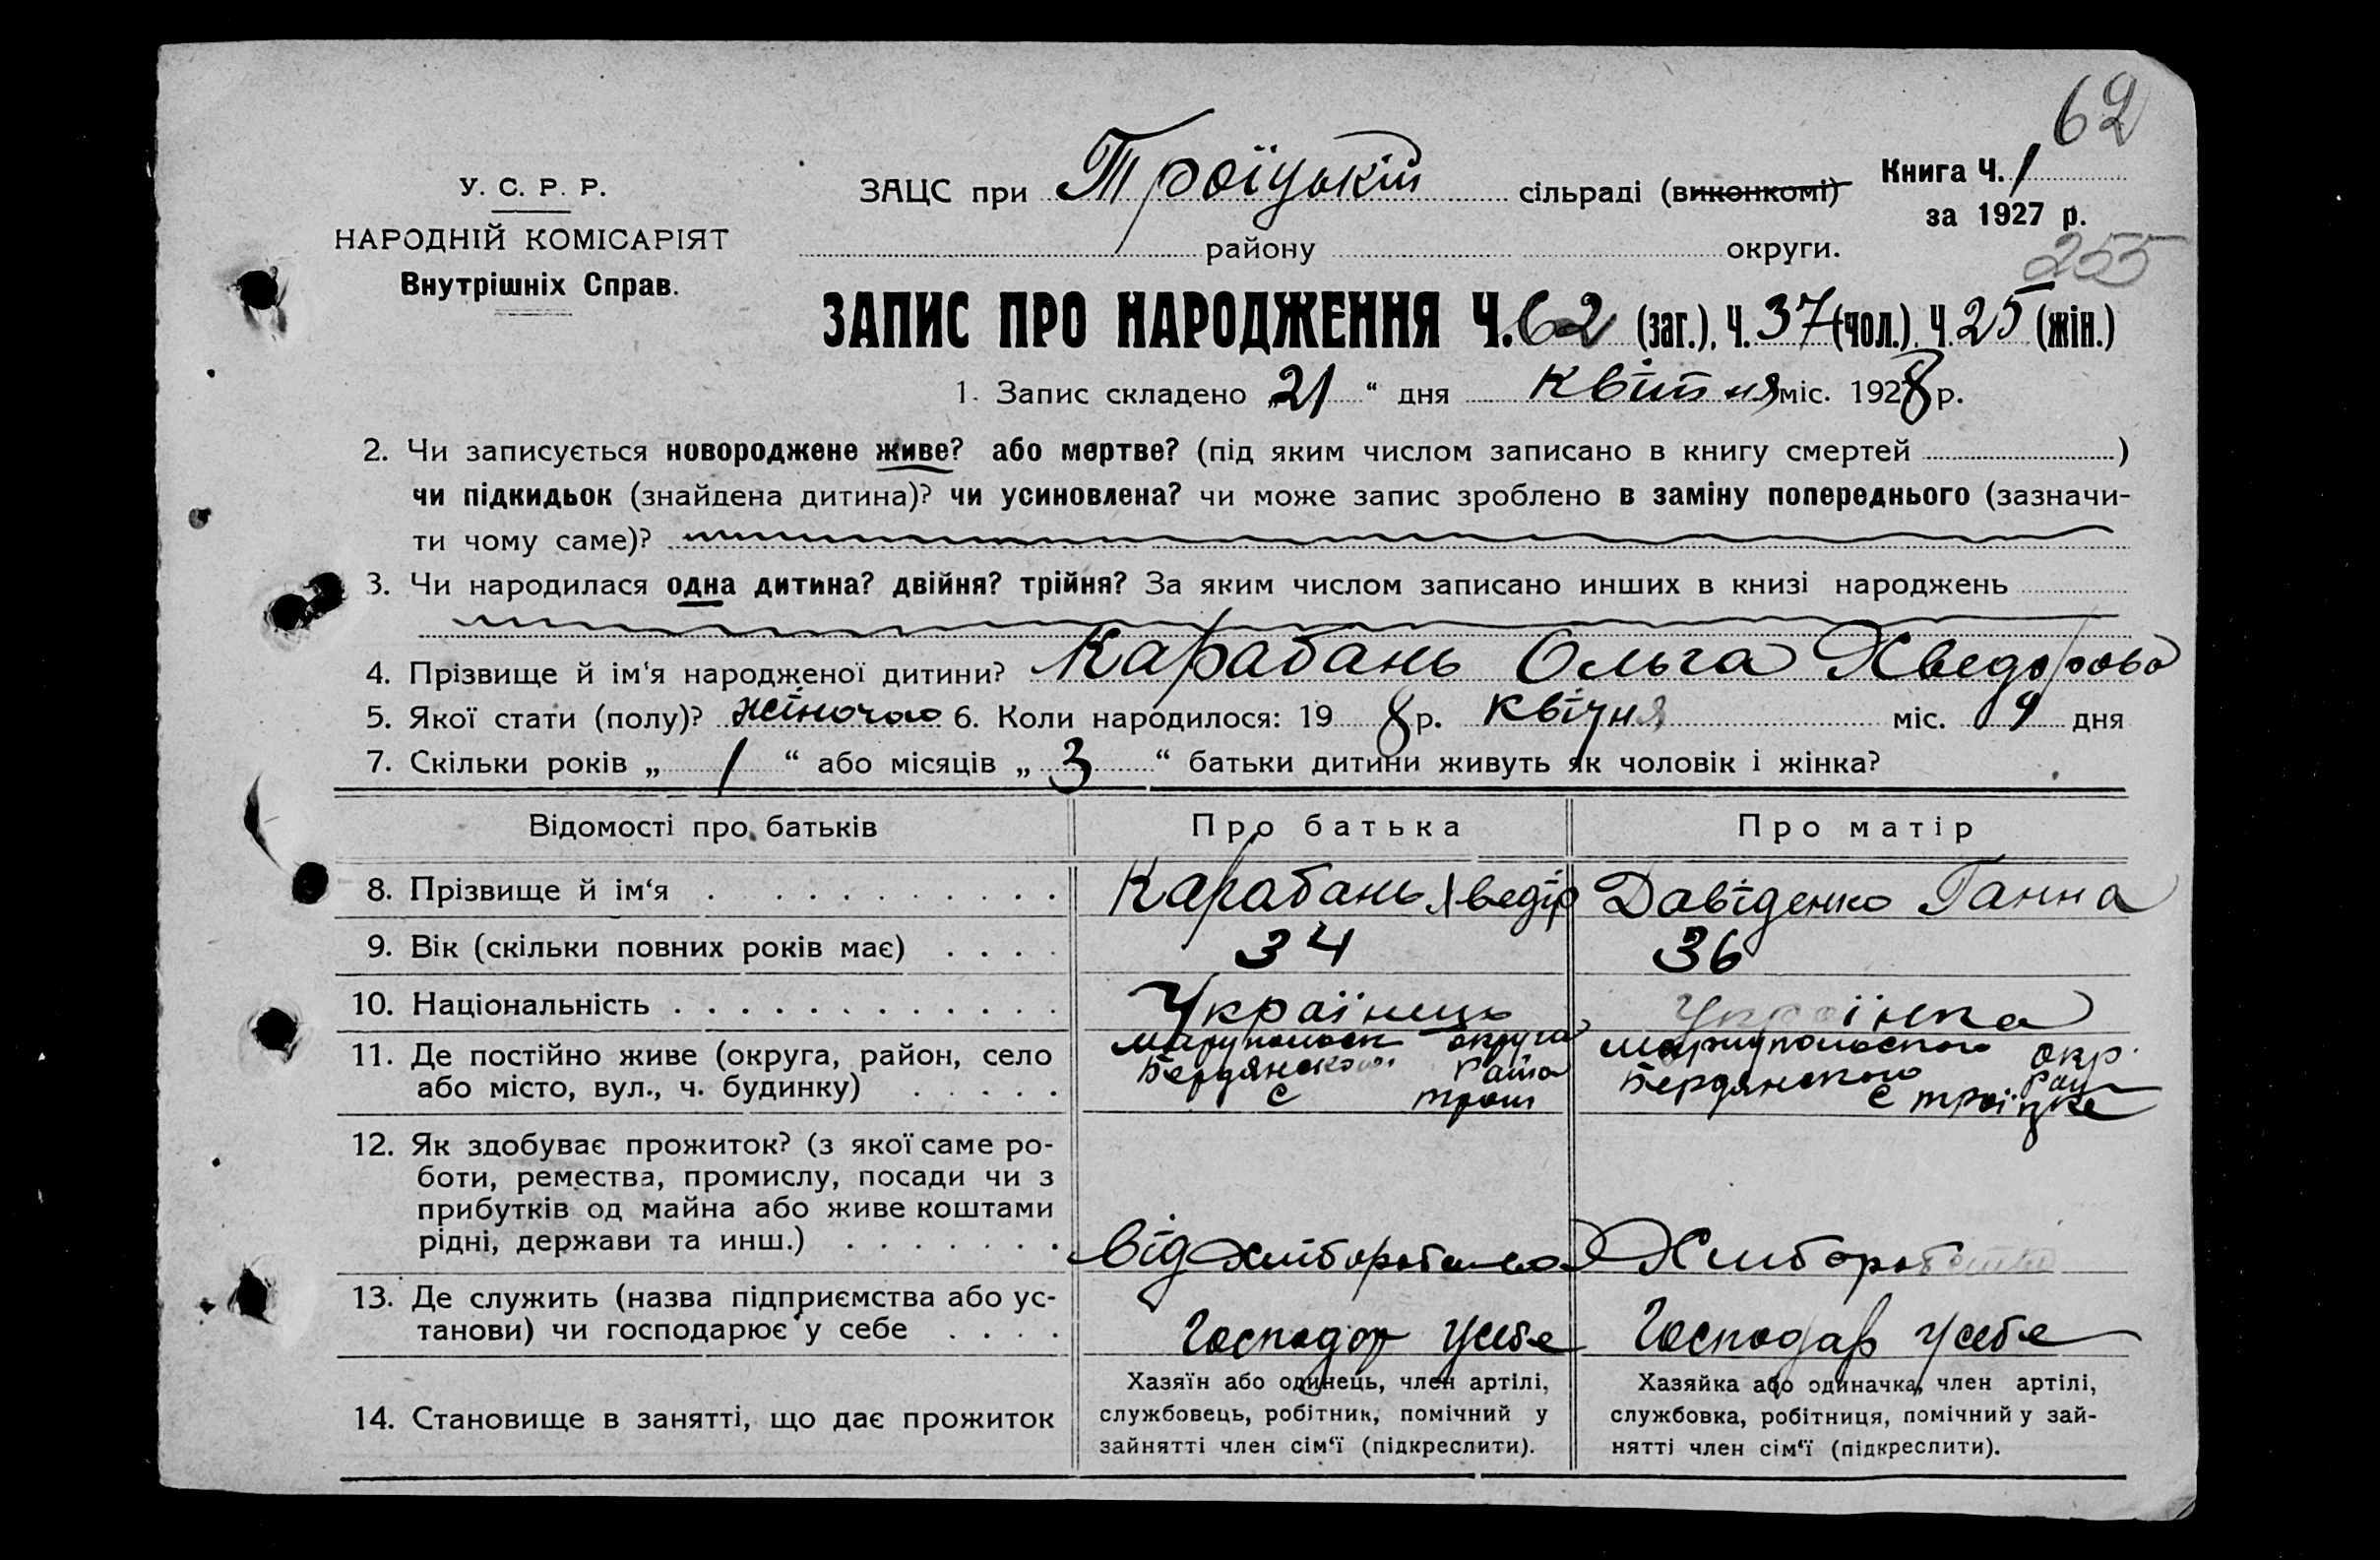 62
У. С. Р. Р.
НАРОДНІЙ КОМІСАРІЯТ
Внутрішніх Справ.
ЗАЦС при Троїцькій сільраді (виконкомі)
району округи.
Книга Ч. 1
за 1927 р.
255
ЗАПИС ПРО НАРОДЖЕННЯ Ч. 62 (заг.), Ч. 37 (чол.), Ч. 25 (жін.)
1. Запис складено „21“ дня Квітня міс. 1928 р.
2. Чи записується новороджене живе? або мертве? (під яким числом записано в книгу смертей )
чи підкидьок (знайдена дитина)? чи усиновлена? чи може запис зроблено в заміну попереднього (зазначи-
ти чому саме)?
3. Чи народилася одна дитина? двійня? трійня? За яким числом записано инших в книзі народжень
4. Прізвище й ім'я народженої дитини? Карабань Ольга Хведорова
5. Якої стати (полу)? жіночою 6. Коли народилося: 19 8 р. Квічня міс. 9 дня
7. Скільки років „ 1 “ або місяців „ 3 “ батьки дитини живуть як чоловік і жінка?
Відомості про батьків Про батька Про матір
8. Прізвище й ім‘я Карабань Хведір Давіденко Ганна
9. Вік (скільки повних років має) 34 36
10. Національність Українець Українка
11. Де постійно живе (округа, район, село
або місто, вул., ч. будинку)
округа
Бердянского
с
Маріупольского окр.
Бердянского Рай
с троїцке
12. Як здобуває прожиток? (з якої саме ро-
боти, ремества, промислу, посади чи з
прибутків од майна або живе коштами
рідні, держави та инш.)
від
13. Де служить (назва підприємства або ус-
танови) чи господарює у себе
Господар усебе Господар усебе
14. Становище в занятті, що дає прожиток
Хазяїн або одинець, член артілі,
службовець, робітник, помічний у
зайнятті член сім‘ї (підкреслити).
Хазяйка або одиначка, член артілі,
службовка, робітниця, помічний у зай-
нятті член сім‘ї (підкреслити).